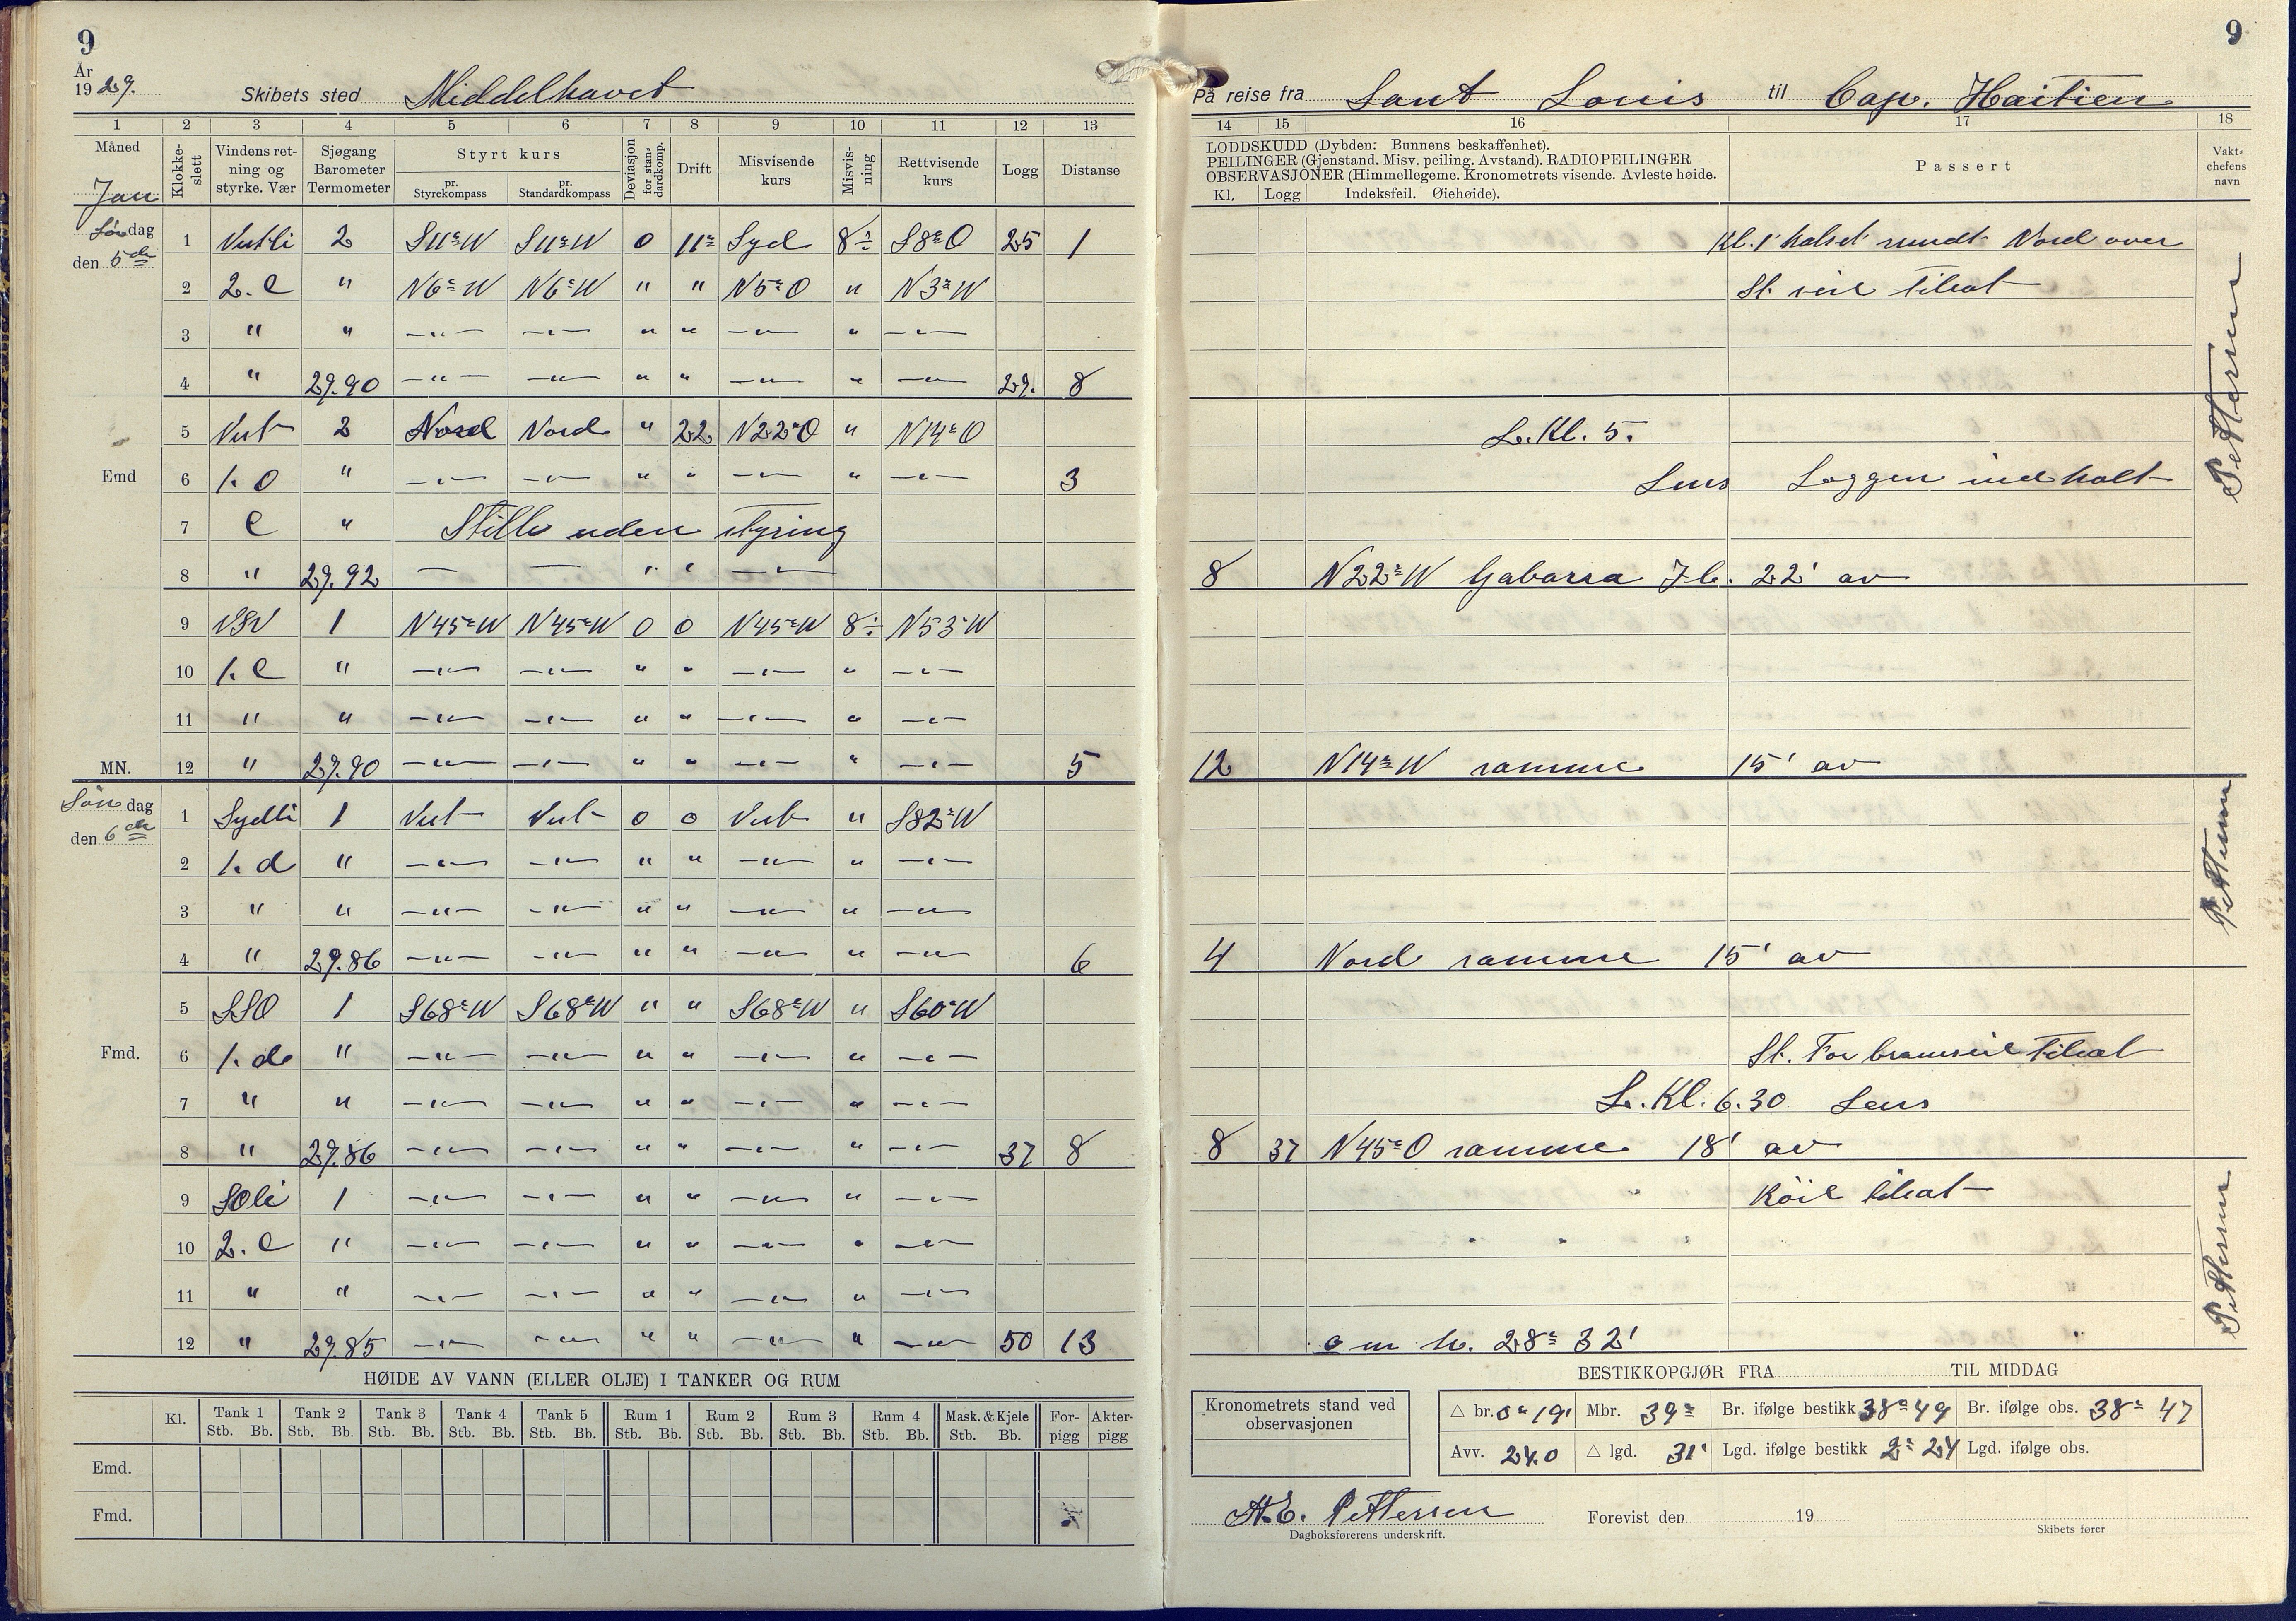 9
År
1929.
Skibets sted Middelhavet
1 2 3 4 5 6 7 8 9 10 11 12 13
Måned Jan
Klokkeslett
Vindens retning og styrke. Vær
Sjøgang Barometer Termometer
Styrt kurs
pr. Styrekompass
pr. Standardkompass
Deviasjon for standardkomp.
Drift
Misvisende kurs
Misvisning
Rettvisende kurs
Logg
Distanse
Løndag
den 5de
1 Vestli 2 S11°W S11°W 0 11° Syd 8÷ S8°O 25 1
2 2.C " N6°W N6°W " " N5°O " N3°W
3 " " —"— —"— " " —"— " —"—
4 " 29.90 —"— —"— " " —"— " —"— 29. 8
5 Vest 2 Nord Nord " 22 N22°O " N14°O
Emd 6 1.O " —"— —"— " " —"— " —"— 3
7 C " Stille uden styring
8 " 29.92 — — " " —"—
9 VSV 1 N45°W N45°W 0 0 N45°W 8÷ N53°W
10 1.C " —"— —"— " " —"— " —"—
11 " " —"— —"— " " —"— " —"—
MN. 12 " 29.90 —"— —"— " " —"— " —"— 5
Søndag
den 6de
1 Sydli 1 Vest Vest 0 0 Vest " S82°W
2 1.d " —"— —"— " " —"— " —"—
3 " " —"— —"— " " —"— " —"—
4 " 29.86 —"— —"— " " —"— " —"— 6
5 SSO 1 S68°W S68°W " " S68°W " S60°W
Fmd. 6 1.d " —"— —"— " " —"— " —"—
7 " " —"— —"— " " —"— " —"—
8 " 29.86 —"— —"— " " —"— " —"— 37 8
9 SOli 1 —"— —"— " " —"— " —"—
10 2.C " —"— —"— " " —"— " —"—
11 " " —"— —"— " " —"— " —"—
12 " 29.85 —"— —"— " " —"— " —"— 50 13
HØIDE AV VANN (ELLER OLJE) I TANKER OG RUM
Kl. Tank 1 Tank 2 Tank 3 Tank 4 Tank 5 Rum 1 Rum 2 Rum 3 Rum 4 Mask. & Kjele Forpigg Akterpigg
Stb. Bb. Stb. Bb. Stb. Bb. Stb. Bb. Stb. Bb. Stb. Bb. Stb. Bb. Stb. Bb. Stb. Bb. Stb. Bb.
Emd.
Fmd.
9
På reise fra Sant Louis til Cap. Haitien
14 15 16 17 18
LODDSKUDD (Dybden: Bunnens beskaffenhet).
PEILINGER (Gjenstand. Misv. peiling. Avstand). RADIOPEILINGER
OBSERVASJONER (Himmellegeme. Kronometrets visende. Avleste høide.
Kl. Logg Indeksfeil. Øiehøide).
Passert
Vaktchefens navn
Kl. 1 halset rundt Nord over
St. seil tilsat
Pettersen
L. Kl. 5.
Lens Loggen indhalt
8 N22°W Gabarra Fb. 22' av
12 N14°W samme 15' av
Pettersen
4 Nord samme 15' av
St. For bramseil tilsat
L. Kl. 6.30 Lens
8 37 N45°O samme 18' av
Röil tilsat
Pettersen
o m h. 28° 32'
BESTIKKOPGJØR FRA TIL MIDDAG
Kronometrets stand ved observasjonen
△ br. 0° 19' Mbr. 39° Br. ifølge bestikk 38° 49 Br. ifølge obs. 38° 47
Avv. 24.0 △ lgd. 31' Lgd. ifølge bestikk 2° 24 Lgd. ifølge obs.
A.E. Pettersen
Dagboksførerens underskrift.
Forevist den 19
Skibets fører